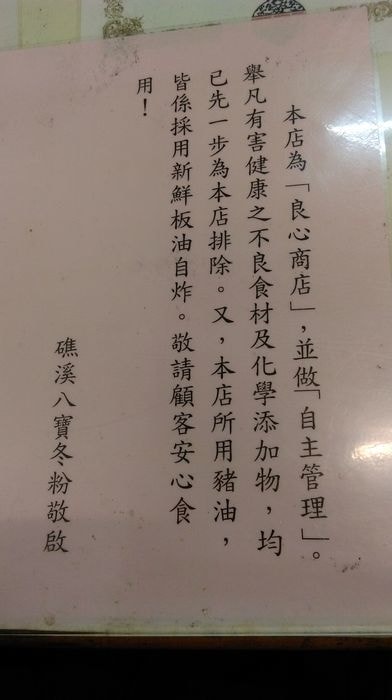 本店為「良心商店」，並做「自主管理」。
舉凡有害健康之不良食材及化學添加物，均
已先一步為本店排除。又，本店所用豬油，
皆係採用新鮮板油自炸。敬請顧客安心食
用！
礁溪八寶冬粉敬啟